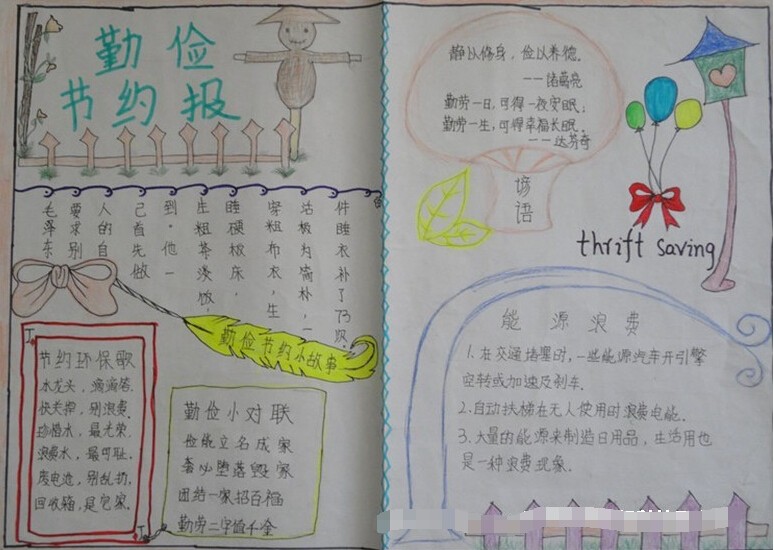 勤俭
节约报
毛泽东
要求别
人的自
己首先做
到。他一
生粗茶淡饭，
睡硬板床，
穿粗布衣，生
活极为简朴，一
件睡衣补了73次.
勤俭节约小故事
节约环保歌
水龙头，滴滴答.
快关掉，别浪费.
珍惜水，最光荣.
浪费水，最可耻.
废电池，别乱扔.
回收箱，是它家.
勤俭小对联
俭能立名成家
奢必堕落毁家
团结一家招百福
勤劳二字值千金
静以修身，俭以养德.
——诸葛亮
勤劳一日，可得一夜安眠；
勤劳一生，可得幸福长眠.
——达芬奇
谚语
thrift saving
能源浪费
1.在交通堵塞时，一些能源汽车开引擎
空转或加速及刹车.
2.自动扶梯在无人使用时浪费电能.
3.大量的能源来制造日用品，生活用也
是一种浪费现象.